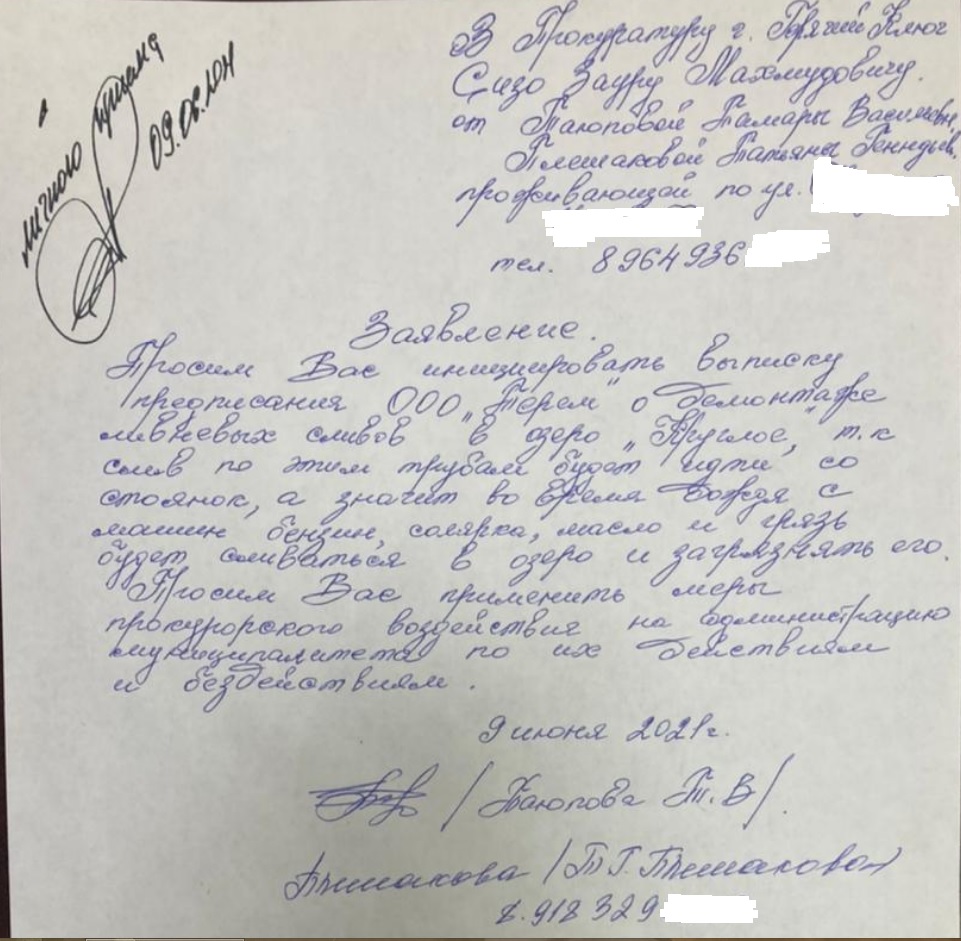 личного приема
09.06.
В Прокуратуру г. Горячий Ключ
Сизо Зауру Махмудовичу.
от Таюповой Тамары Васильевн.
Плешаковой Татьяны Генндьев.
проживающей по ул.
тел. 8964936
Заявление.
Просим Вас инициировать выписку
предписания ООО „Терем" о демонтаже
ливневых сливов в озеро „Круглое", т.к
слив по этим трубам будет идти со
стоянок, а значит во время дождя с
машин бензин, солярка, масло и грязь
будет сливаться в озеро и загрязнять его.
Просим Вас применить меры
прокурорского воздействия на администрацию
муниципалитета по их действиям
и бездействиям.
9 июня 2021г.
/ Таюпова Т.В/.
/
8.918 329